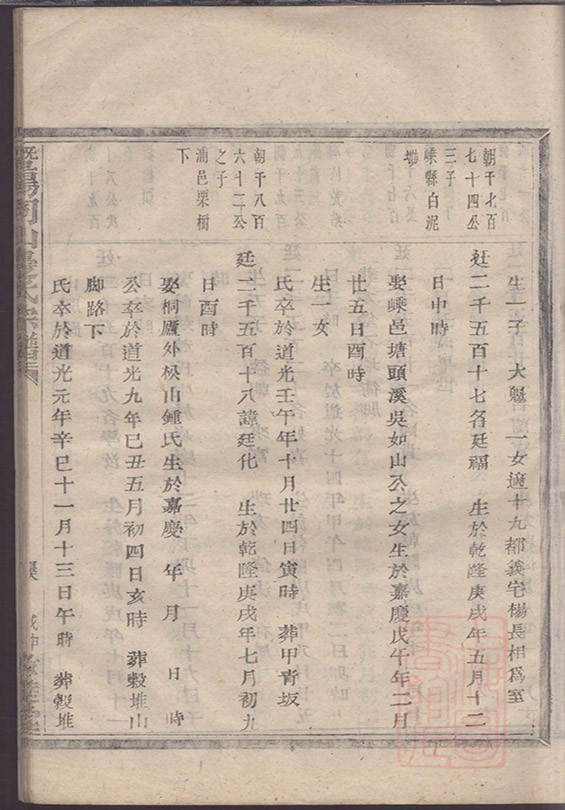 生一子　大魁　一女適十九都義宅楊長相爲室
朝干七百
七十四公
三子
嵊縣白泥
墈
廷二千五百十七名廷福　生於乾隆庚戌年五月十二
日申時
娶嵊邑塘頭溪吳如山公之女生於嘉慶戊午年二月
廿五日酉時
生女
氏卒於道光壬午年十月廿四日寅時　葬甲青坂
朝干八百
六十二公
之子
浦邑栗樹
下
廷二千五百十八諱廷化　生於乾隆庚戌年七月初九
日酉時
娶桐廬外松山鍾氏生於嘉慶　年　月　日　時
公卒於道光九年己丑五月初四日亥時　葬穀堆山
脚路下
氏卒於道光元年辛巳十一月十三日午時　葬穀堆